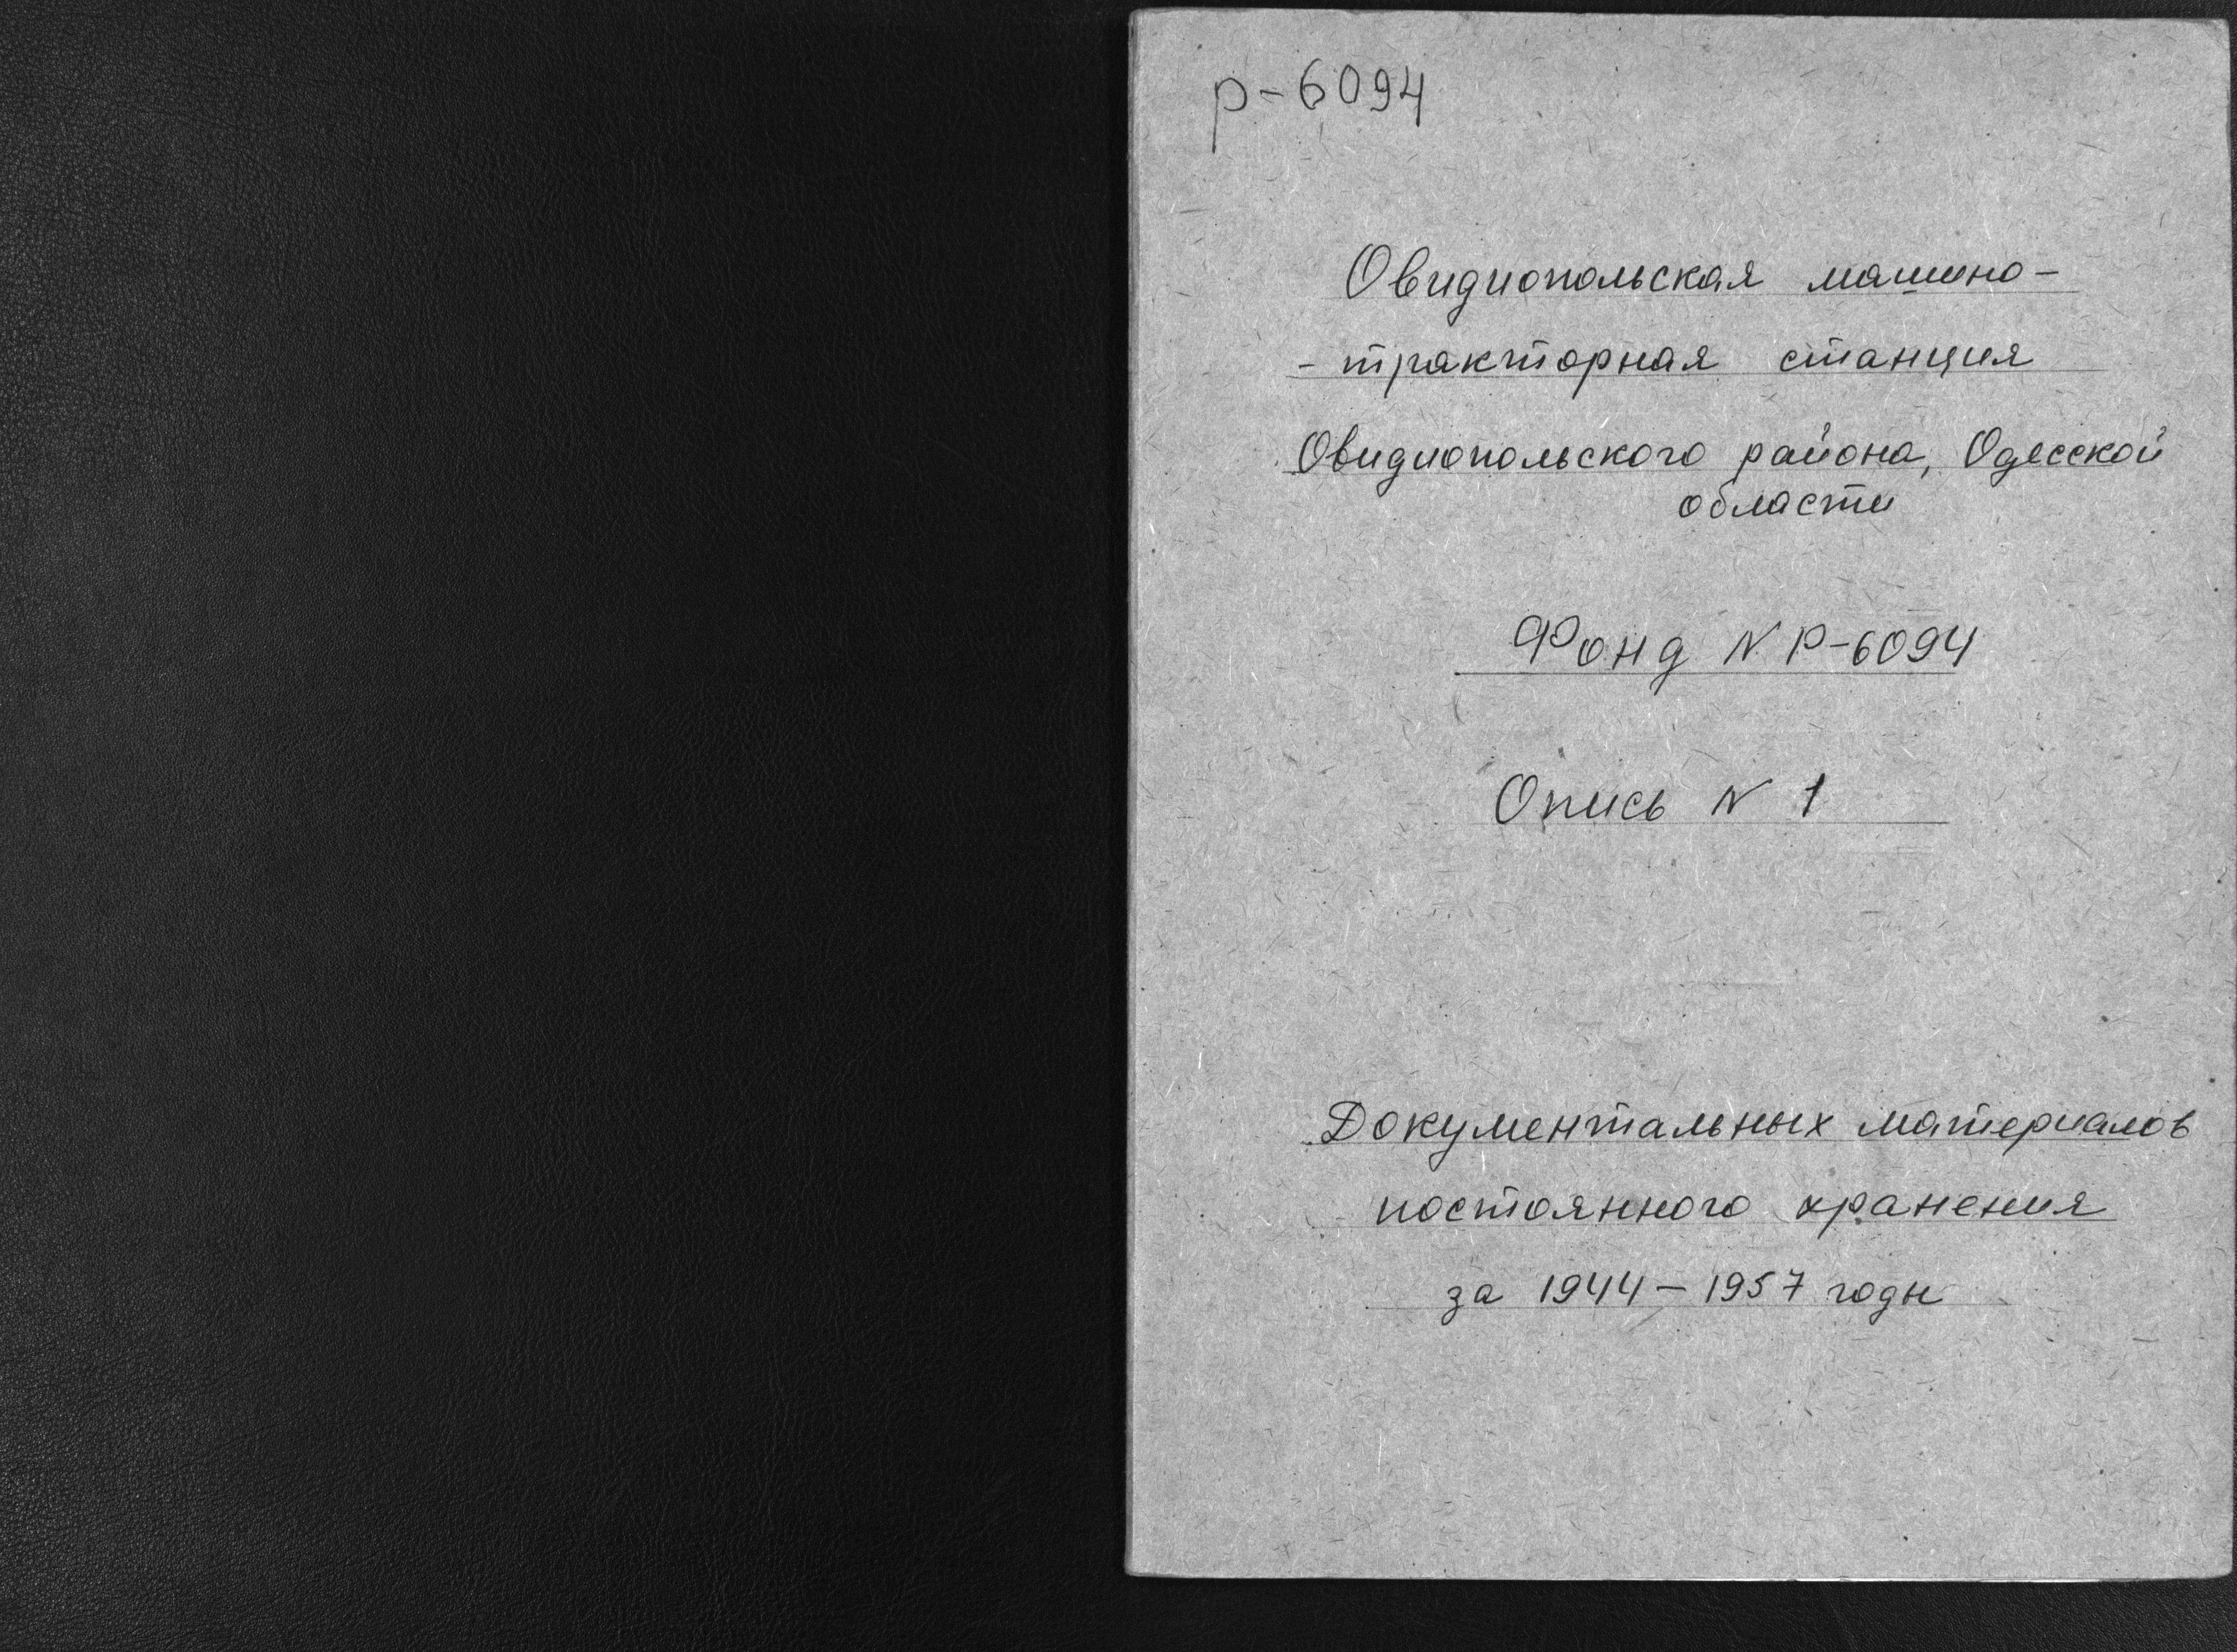 р-6094
Овидиопольская машино-
- тракторная станция
Овидиопольского района, Одесской
области
Фонд N Р-6094
Опись N 1
Документальных материалов
постоянного хранения
за 1944 - 1957 годы